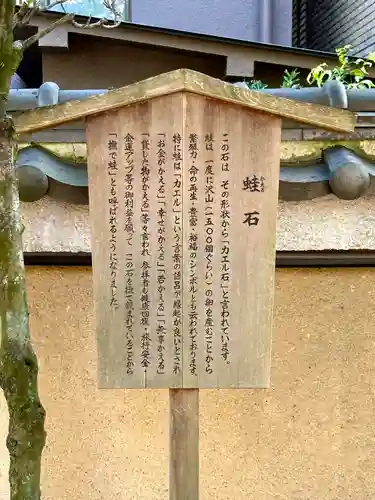 蛙石
かえる
この石は その形状から「カエル石」と言われています。
蛙は 一度に沢山（一五〇〇個ぐらい）の卵を産むことから
繁殖力・命の再生・豊富・裕福のシンボルとも云われております
特に蛙は「カエル」という言葉の語呂が縁起が良いとされ
「お金がかえる」「幸せがかえる」「若がかえる」「無事かえる」
「貸した物がかえる」等々言われ 参拝者も健康回復・旅行安全・
金運アップ等の御利益を願って この石を撫で親まれていることから
「撫で蛙」とも呼ばれるようになりました。